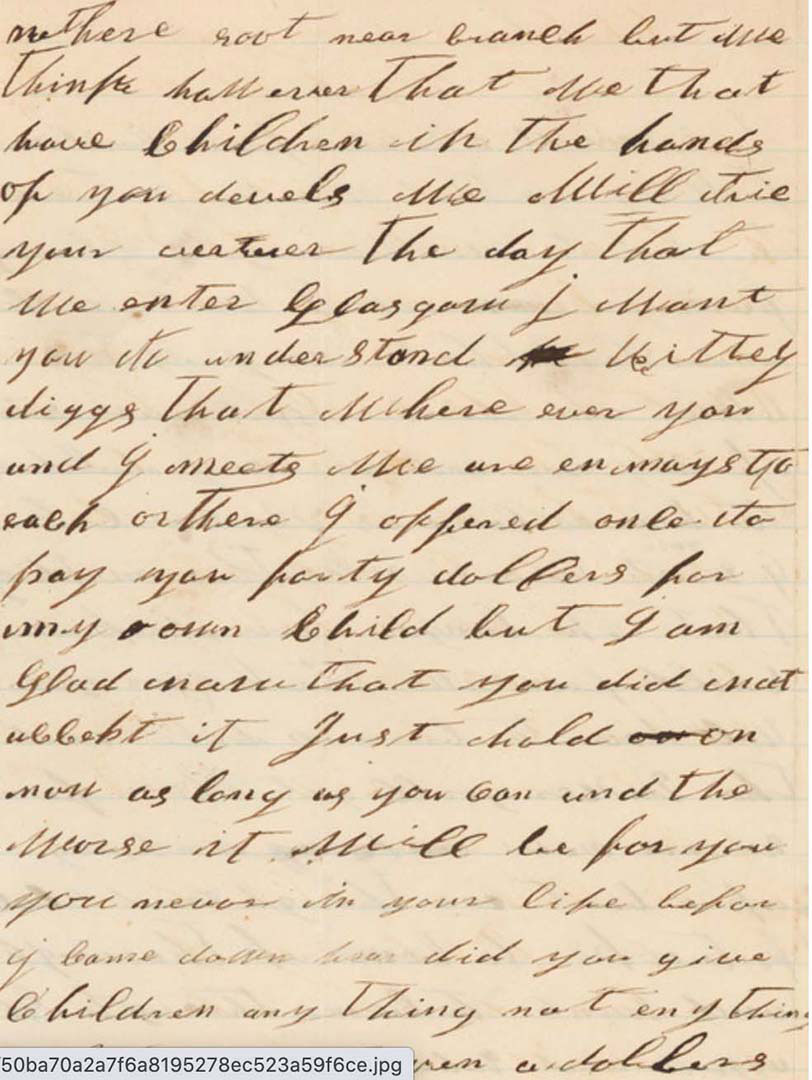 nethere root near branch but we
think how ever that we that
have Children in the hands
of you devels we will trie
your vertuer the day that
we enter Glasgow I want
you to understand Kittey
diggs that where ever you
and I meets we are enmays to
each orthere I offered once to
pay you forty dollers for
my own Child but I am
Glad now that you did not
accept it Just hold on
now as long as you can and the
worse it will be for you
you never in your life befor
I came down hear did you give
Children any thing not eny thing
dollers
50ba70a2a7f6a8195278ec523a59f6ce.jpg